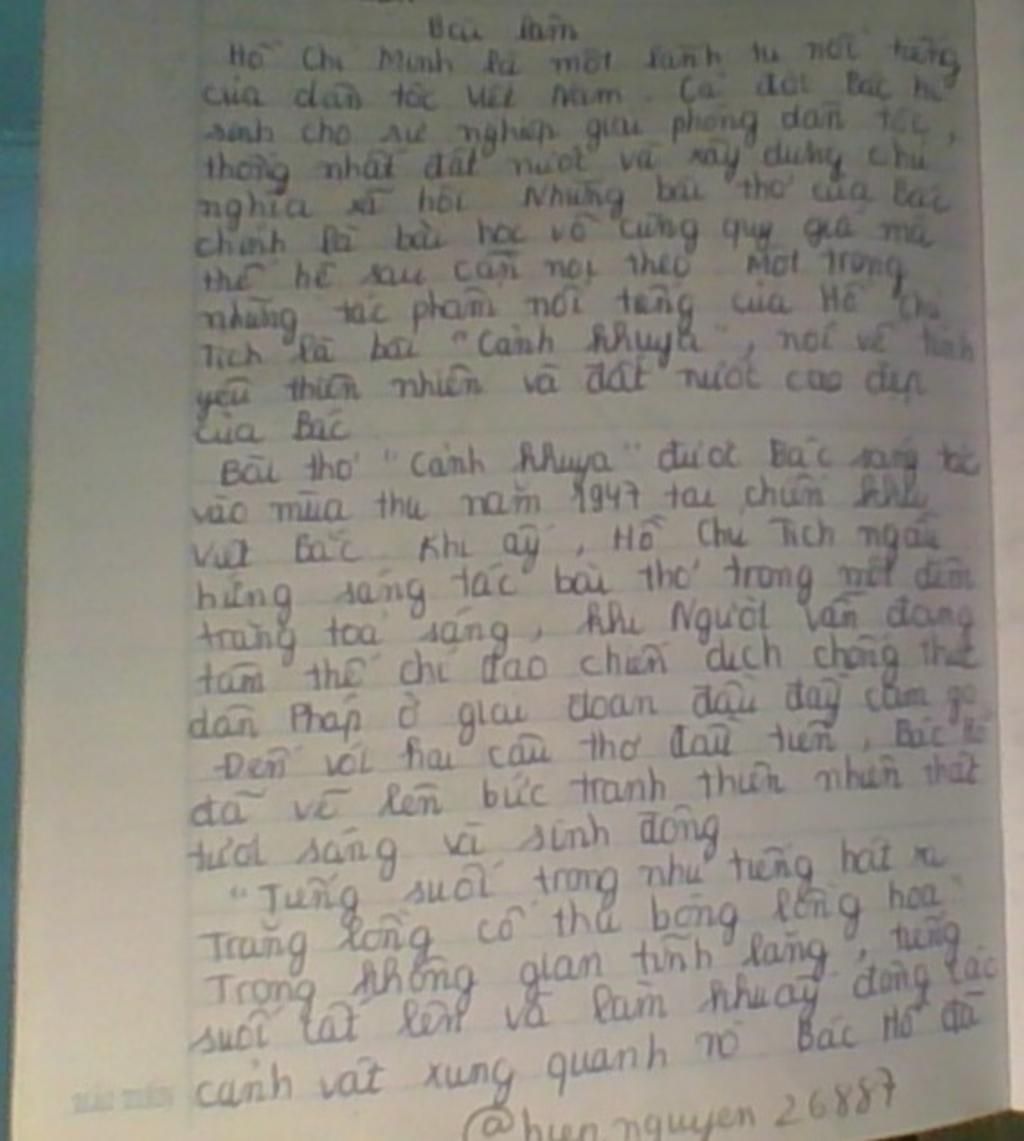 Bài làm
Hồ Chí Minh là một lãnh tụ nổi tiếng
của dân tộc Việt Nam. Cả đời Bác hi
sinh cho sự nghiệp giải phóng dân tộc,
thống nhất đất nước và xây dựng chủ
nghĩa xã hội. Những bài thơ của Bác
chính là bài học vô cùng quý giá mà
thế hệ sau cần noi theo. Một trong
những tác phẩm nổi tiếng của Hồ Chủ
Tịch là bài "Cảnh khuya", nói về tình
yêu thiên nhiên và đất nước cao đẹp
của Bác.
Bài thơ "Cảnh khuya" được Bác sáng tác
vào mùa thu năm 1947 tại chiến khu
Việt Bắc. Khi ấy, Hồ Chủ Tịch ngẫu
hứng sáng tác bài thơ trong một đêm
trăng toả sáng, khi Người vẫn đang
tâm thế chỉ đạo chiến dịch chống thực
dân Pháp ở giai đoạn đầu đầy cam go.
Đến với hai câu thơ đầu tiên, Bác Hồ
đã vẽ lên bức tranh thiên nhiên thật
tươi sáng và sinh động
"Tiếng suối trong như tiếng hát xa
Trăng lồng cổ thụ bóng lồng hoa"
Trong không gian tĩnh lặng, tiếng
suối cất lên và làm khuấy động các
cảnh vật xung quanh nó. Bác Hồ đã
@hien nguyen 26887